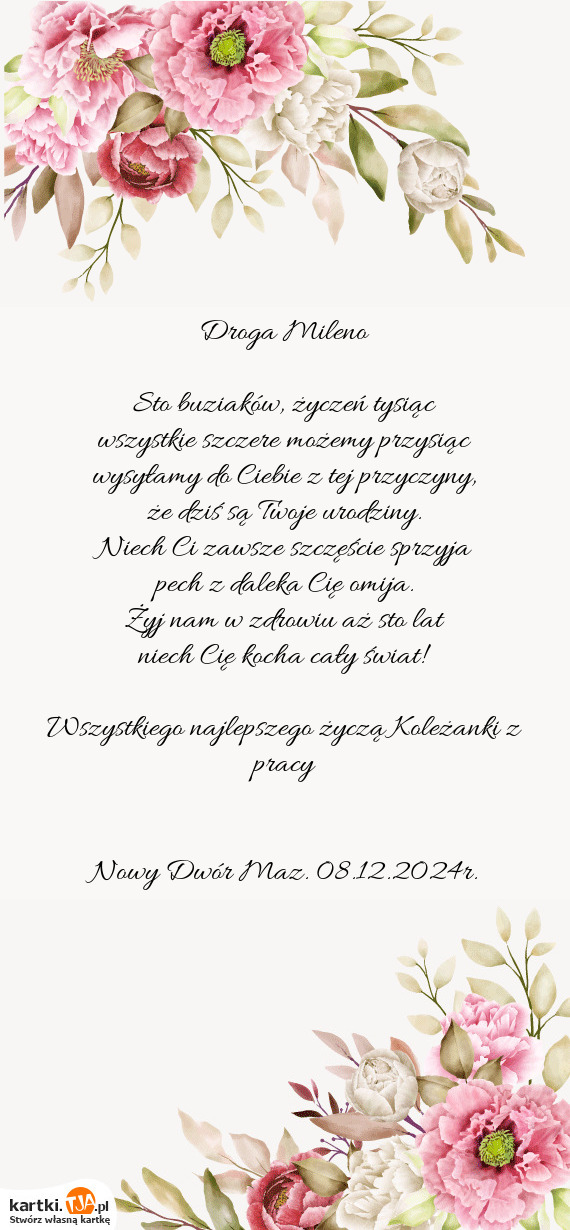 Droga Mileno
Sto buziaków, życzeń tysiąc
wszystkie szczere możemy przysiąc
wysyłamy do Ciebie z tej przyczyny,
że dziś są Twoje urodziny.
Niech Ci zawsze szczęście sprzyja
pech z daleka Cię omija.
Żyj nam w zdrowiu aż sto lat
niech Cię kocha cały świat!
Wszystkiego najlepszego życzą Koleżanki z
pracy
Nowy Dwór Maz. 08.12.2024r.
kartki.TJA.pl
Stwórz własną kartkę